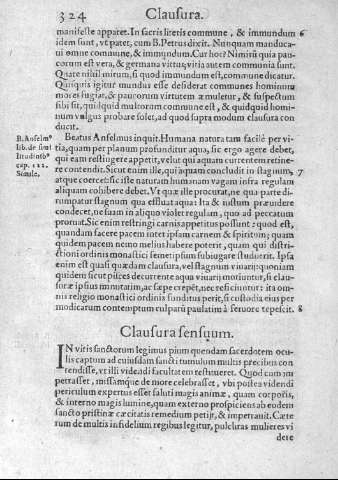 324 Clausura.
manifeste apparet. In sacris literis commune, & immundum 6
idem sunt, vt patet, cum B. Petrus dixit. Nunquam manduca-
ui omne commune, & immundum. Cur hoc? Nimirū quia pau-
corum est vera, & germana virtus; vitia autem communia sunt.
Quare nihil mirum, si quod immundum est, commune dicatur.
Quisquis igitur mundus esse desiderat communes hominum
mores fugiat, & paucorum virtutem æmuletur, & suspectum
sibi sit, quidquid multorum commune est, & quidquid homi-
num vulgus probare solet, ad quod supra modum clausura con
ducit.
B. Anselmº
lib. de simi
litudinibº
cap. 112.
Simile.
Beatus Anselmus inquit. Humana natura tam facilè per vi-
tia, quam per planum profunditur aqua, sic ergo agere debet,
qui eam restringere appetit, velut qui aquam currentem retine-
re contendit. Sicut enim ille, qui aquam concludit in stagnum, 7
atque coercet: sic iste naturam humanam vagam infra regulam
aliquam cohibere debet. Vt quæ ille procurat, ne qua parte di-
rumpatur stagnum qua effluat aqua: Ita & iustum præuidere
condecet, ne suam in aliquo violet regulam, quo ad peccatum
proruat. Sic enim restringi carnis appetitus possunt: quod est,
quandam facere pacem inter ipsam carnem & spiritum; quam
quidem pacem nemo melius habere poterit, quam qui distri-
ctioni ordinis monastici semetipsum subiugare studuerit. Ipsa
enim est quasi quædam clausura, vel stagnum viuarij: quoniam
quidem sicut pisces decurrente aqua viuarij moriuntur, si clau-
suræ ipsius immutatim, ac sæpe crepēt, nec reficiuntur: ita om-
nis religio monastici ordinis funditus perit, si custodia eius per
modicarum contemptum culparū paulatim à feruore tepescit. 8
Clausura sensuum.
IN vitis sanctorum legimus pium quendam sacerdotem ocu-
lis captum ad cuiusdam sancti tumulum multis precibus con
tendisse, vt illi videndi facultatem restitueret. Quod cum im
petrasset, missamque de more celebrasset, vbi postea videndi
periculum expertus esset saluti magis animæ, quam corporis,
& interno magis lumine, quam externo prospiciens ab eodem
sancto pristinæ cæcitatis remedium petijt, & impetrauit. Cæte
rum de multis infidelium regibus legitur, pulchras mulieres vi
dere